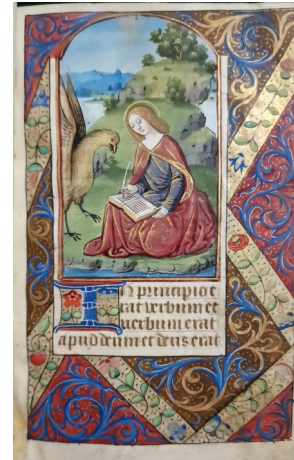 In principio e
rat verbum et
uerbum erat
apud deum et deus erat